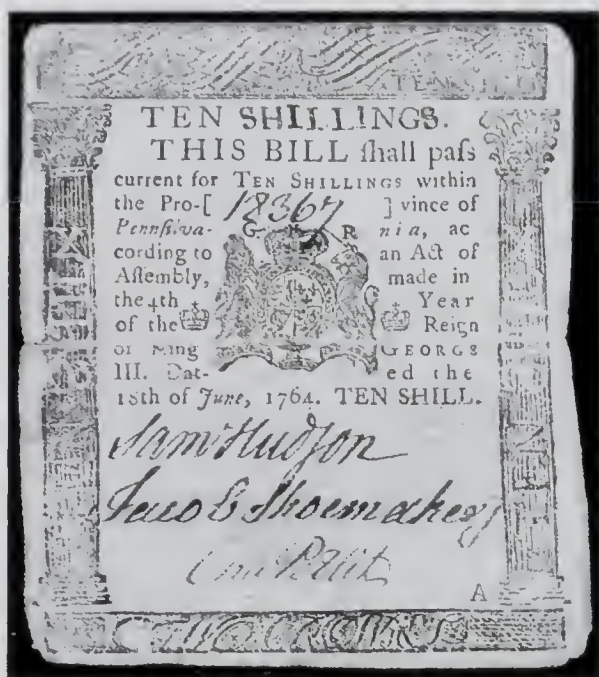 TEN SHILLINGS.
THIS BILL ſhall paſs
current for TEN SHILLINGS within
the Pro-[ 18367 ] vince of
Pennſilva- G R nia, ac
cording to an Act of
Aſſembly, made in
the 4th Year
of the Reign
of King GEORGE
III. Dat- ed the
18th of June, 1764. TEN SHILL.
Samˡ Hudſon
Jacob Shoemaker
A